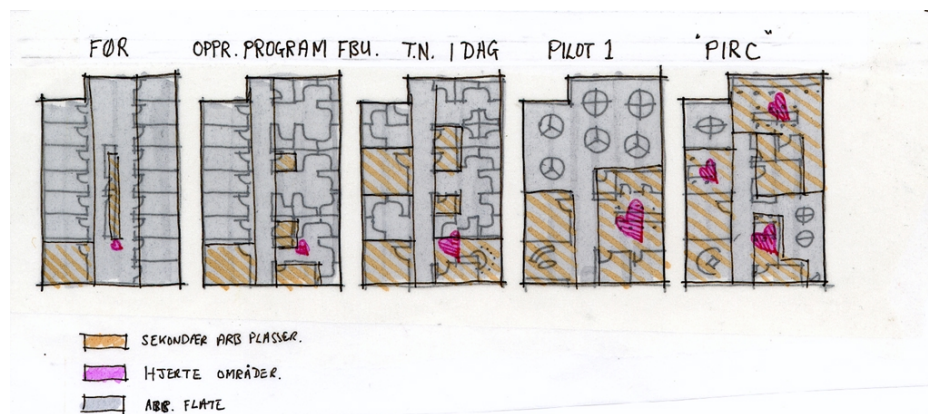 FØR
OPPR. PROGRAM FBU.
T.N. I DAG
PILOT 1
"PIRC"
SEKONDÆR ARB PLASSER.
HJERTE OMRÅDER.
ARB. FLATE